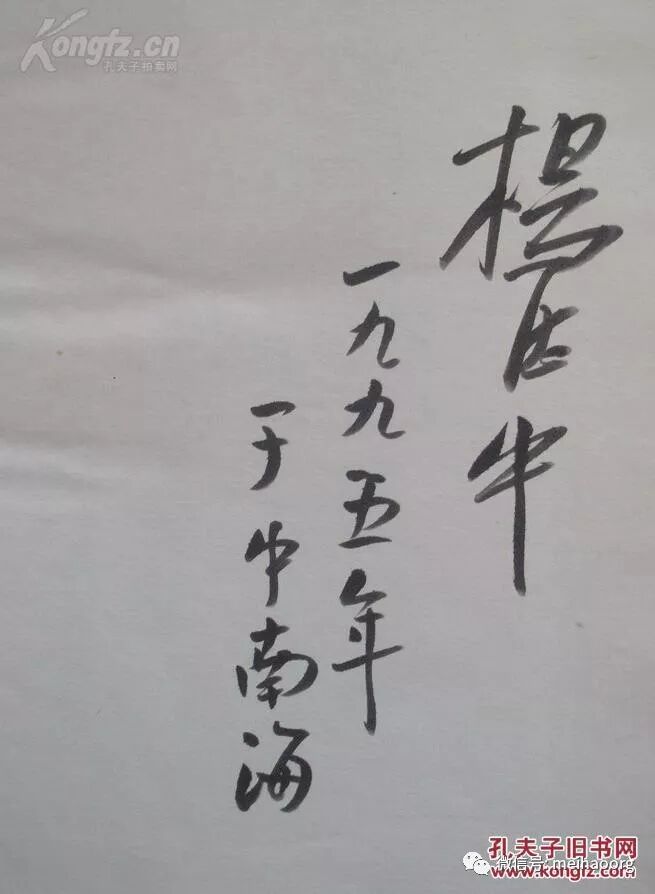 Kongfz.cn
孔夫子拍卖网
楊 中
一九九五年
于中南海
孔夫子旧书网
微信号: meihaoorg